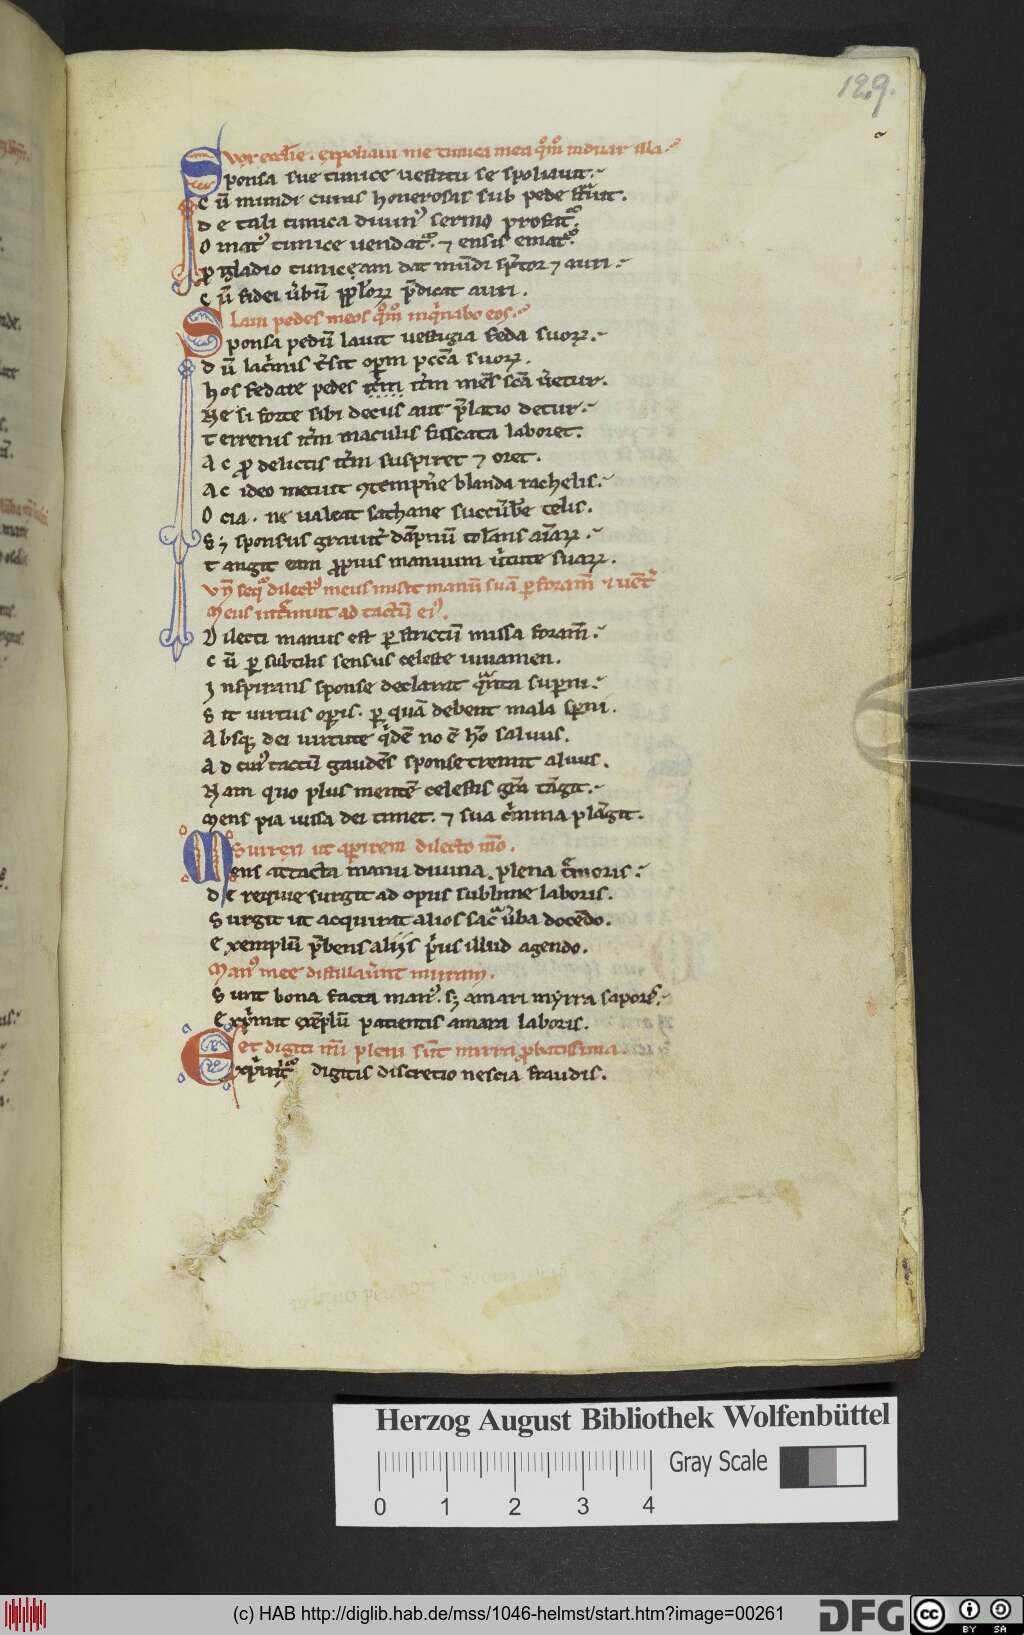 129.
Vox eccl̄ie. Expoliaui me tunica mea qͦmͦ induar illa.
Sponsa sue tunice uestitu se spoliauit.
Cū mundi curas honerosas sub pede st͛uit.
De tali tunica diuin᷒ sermo profat᷑.
O mat᷒ tunice uendat᷑. ⁊ ensis emat᷑.
P gladio tunicę eam dat mūdi sp̄tor ⁊ auri.
Cū fidei u͛bū pp̄l'oꝝ p̄dicat auri.
Laui pedes meos qͦmͦ inqͥnabo eos.
Sponsa pedū lauit uestigia feda suoꝝ.
Dū lac͛mis t͛sit opum pcc̄a suoꝝ.
Hos fedare pedes it͛m it͛m mēs sc̄a u͛etur.
Ne si forte sibi decus aut p̄latio detur.
Terrenis it͛m maculis fuscata laboret.
Ac ꝓ delictis it͛m suspiret ⁊ oret.
Ac ideo metuit ꝯtempn͛e blanda rachelis.
Ocia. ne ualeat sathane succūb͛e telis.
Sꝫ sponsus grauit͛ dāpnū tol͛ans aīaꝝ.
Tangit eam ꝓpius manuum u͛tute suaꝝ.
Vn̄ seqͥ dilect᷒ meus misit manū suā ꝑ foram̄ ⁊ uent͛
Meus int͛muit ad tactū ei᷒.
Dilecti manus est ꝑ strictū missa foram̄.
Cū ꝑ subtilis sensus celeste iuuamen.
Inspirans sponse declarat qͣnta supni.
Sit uirtus opis. ꝑ quā debent mala spni.
Absqꝫ dei uirtute qͥdē no ē h̄o saluus.
Ad cui᷒ tactū gaudēs sponse tremit aluus.
Nam quo plus mentē celestis gr̄a tāgit.
Mens pia iussa dei timet. ⁊ sua c͛mina plāgit.
Surrexi ut apirem dilecto m̄o.
Mens attacta manu diuina. plena t͛moris.
De requie surgit ad opus sublime laboris.
Surgit ut acquirat alios sac͛ u͛ba docēdo.
Exemplū p̄bens aliis p͛us illud agendo.
Man᷒ mee distillau͛nt mirram.
Sunt bona facta man᷒. sꝫ amari myrra saporis.
Exp͛mit exēplū patientis amara laboris.
Et digiti mī pleni sūt mirra ꝓbatissima.
Exp͛mit᷑ digitis discretio nescia fraudis.
Herzog August Bibliothek Wolfenbüttel
Gray Scale
0 1 2 3 4
(c) HAB http://diglib.hab.de/mss/1046-helmst/start.htm?image=00261
DFG
cc BY SA